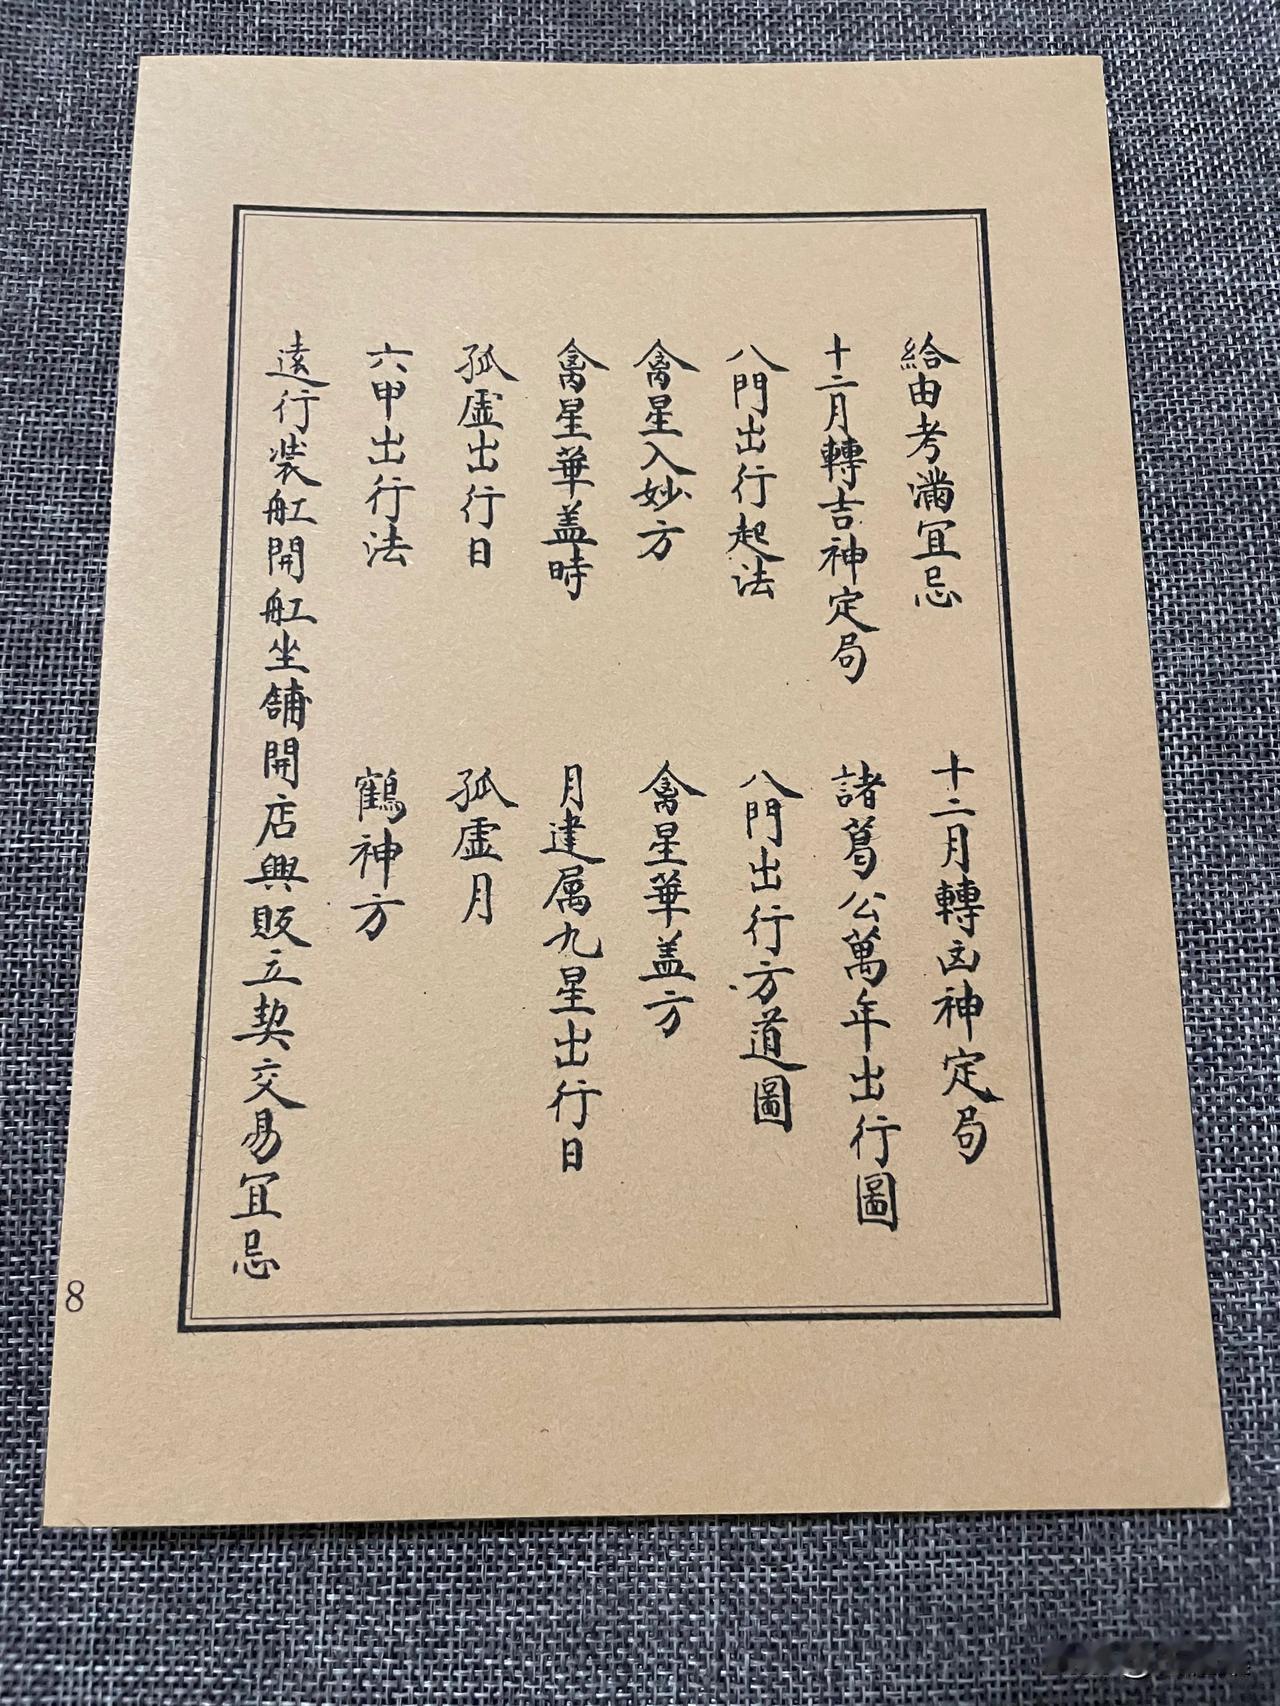 給由考滿宜忌
十二月轉凶神定局
十二月轉吉神定局
諸葛公萬年出行圖
八門出行起法
八門出行方道圖
禽星入妙方
禽星華盖方
禽星華盖時
月建属九星出行日
孤虛出行日
孤虛月
六甲出行法
鶴神方
遠行裝舡開舡坐舖開店興販立契交易宜忌
8